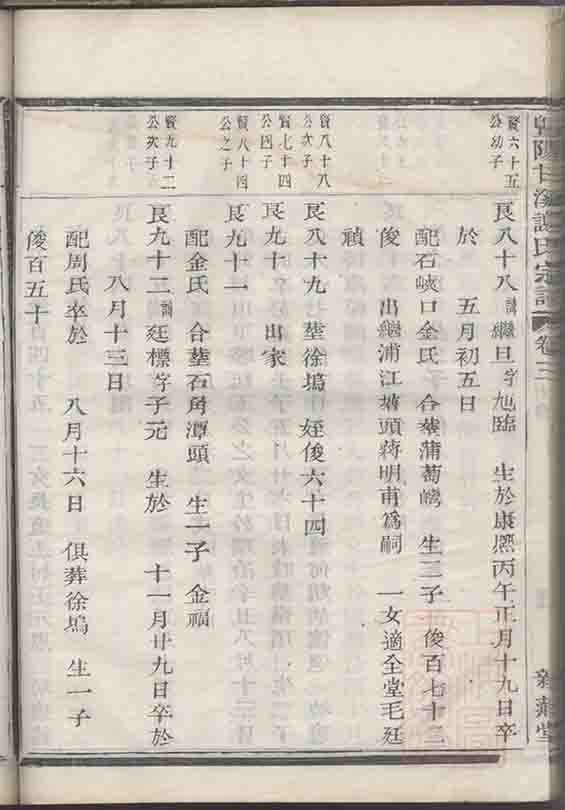 暨陽甘溪謝氏宗譜 卷三
賢六十五公幼子
艮八十八 諱繼旦字旭臨 生於康熙丙午正月十九日卒
於 五月初五日
配石峽口金氏 合葬蒲萄灣 生二子 俊百七十三
俊 出繼浦江 頭蔣明甫爲嗣 一女適全堂毛廷
禎
賢八十八公次子
艮八十九 葬徐塢 姪俊六十四
賢七十四公四子
艮九十 出家
賢八十四公之子
艮九十一
配金氏 合葬石角潭頭 生一子 金福
賢九十二公次子
艮九十二 諱廷標字子元 生於 十一月廿九日卒於
八月十三日
配周氏卒於 八月十六日 俱葬徐塢 生一子
俊百五十